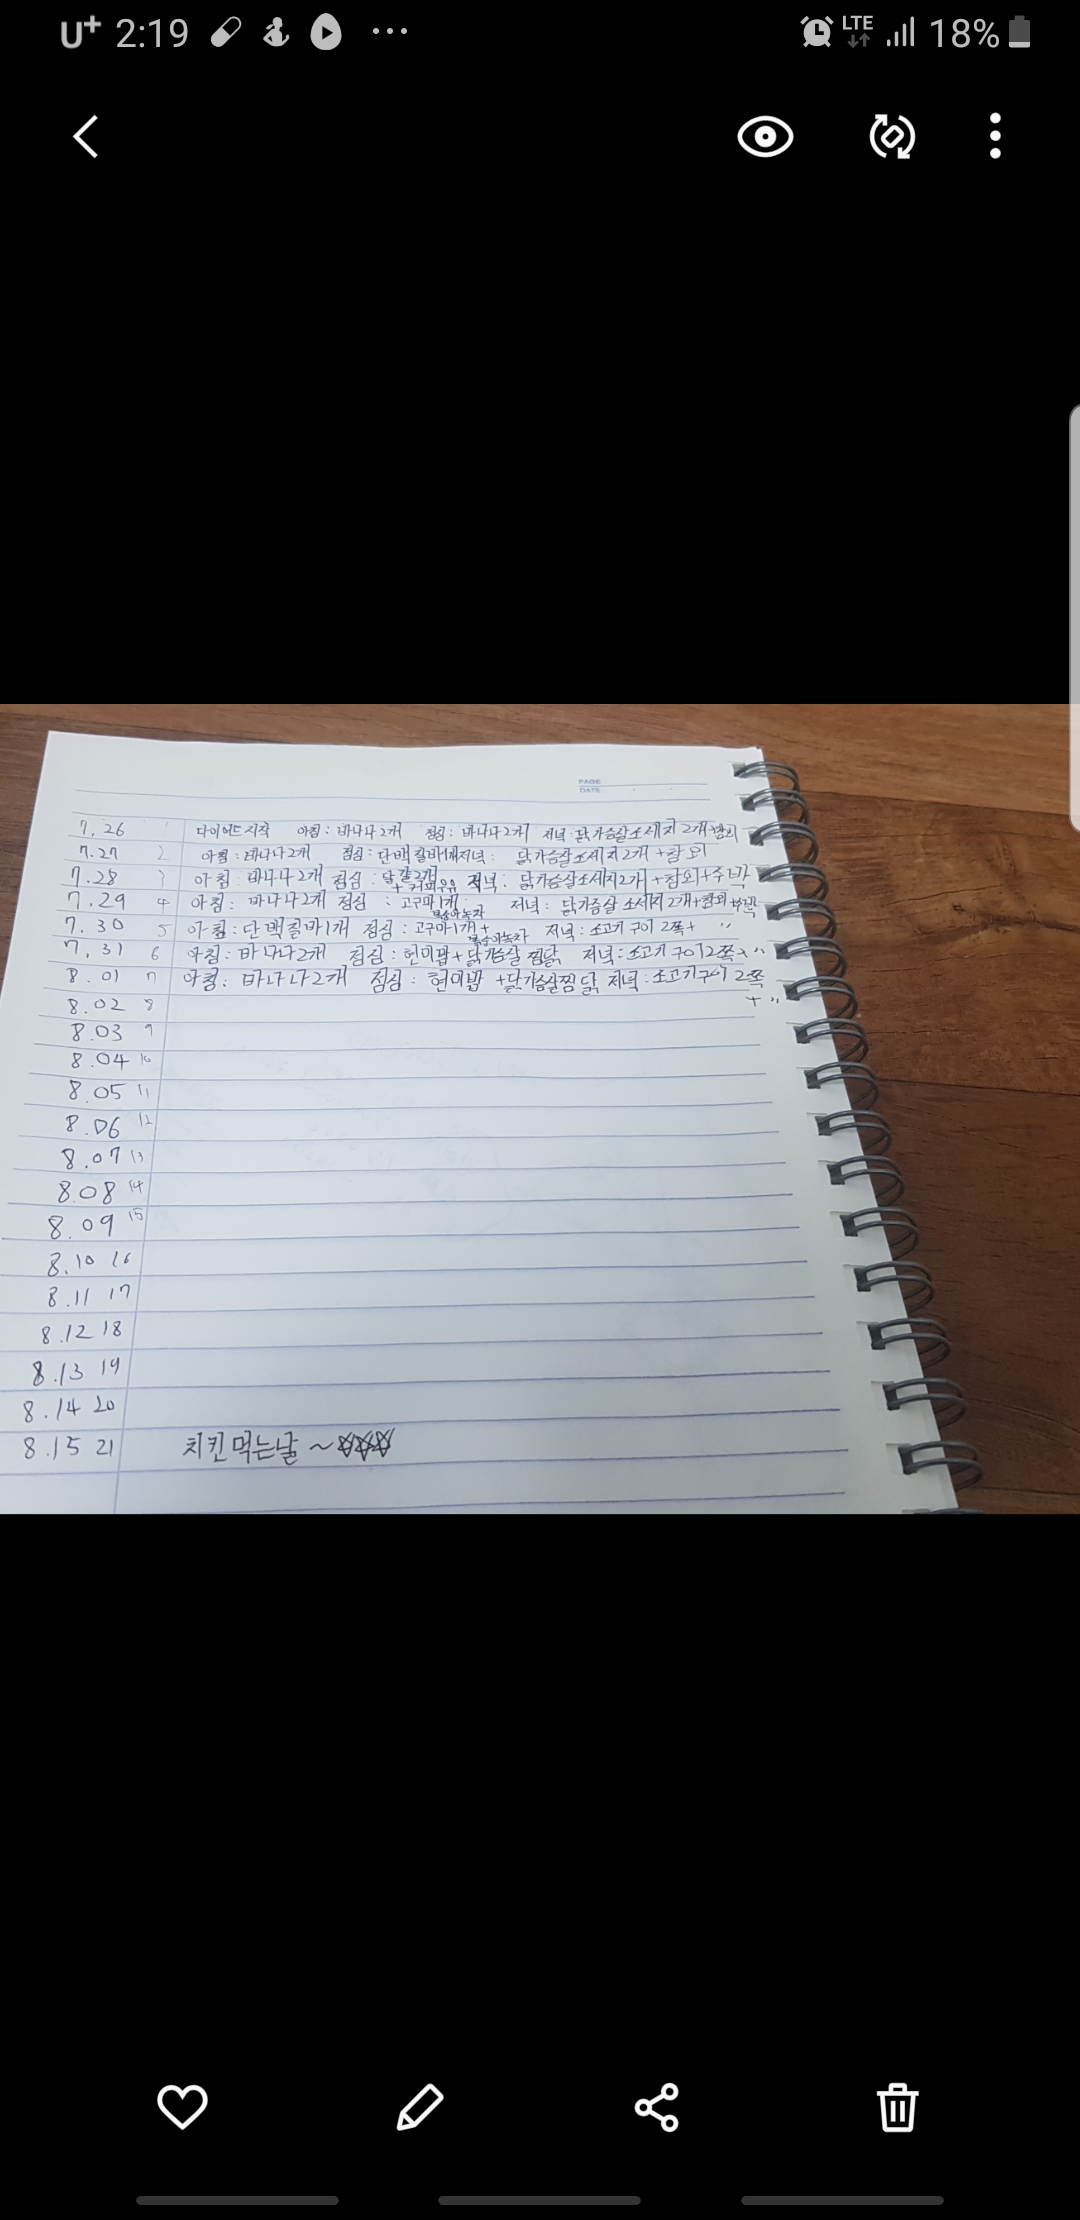 U+ 2:19 LTE 18%
PAGE
DATE
7.26 1 다이어트 시작 아침 : 바나나 2개 점심 : 바나나 2개 저녁 : 닭가슴살소세지 2개 +참외
7.27 2 아침 : 바나나 2개 점심 : 단백질바1개 저녁 : 닭가슴살소세지 2개 +참외
7.28 3 아침 : 바나나 2개 점심 : 달걀2개 + 커피우유 저녁 : 닭가슴살소세지2개 +참외+수박
7.29 4 아침 : 바나나 2개 점심 : 고구마1개 저녁 : 닭가슴살 소세지 2개+참외+수박
7.30 5 아침 : 단백질바1개 점심 : 고구마1개+ 복숭아녹차 저녁 : 소고기 구이 2쪽+ "
7.31 6 아침 : 바나나2개 점심 : 현미밥+닭가슴살 찜닭 복숭아녹차 저녁 : 소고기구이2쪽+ "
8.01 7 아침 : 바나나2개 점심 : 현미밥 +닭가슴살찜닭 저녁 : 소고기구이 2쪽
+ "
8.02 8
8.03 9
8.04 10
8.05 11
8.06 12
8.07 13
8.08 14
8.09 15
8.10 16
8.11 17
8.12 18
8.13 19
8.14 20
8.15 21 치킨 먹는날 ~☆☆☆